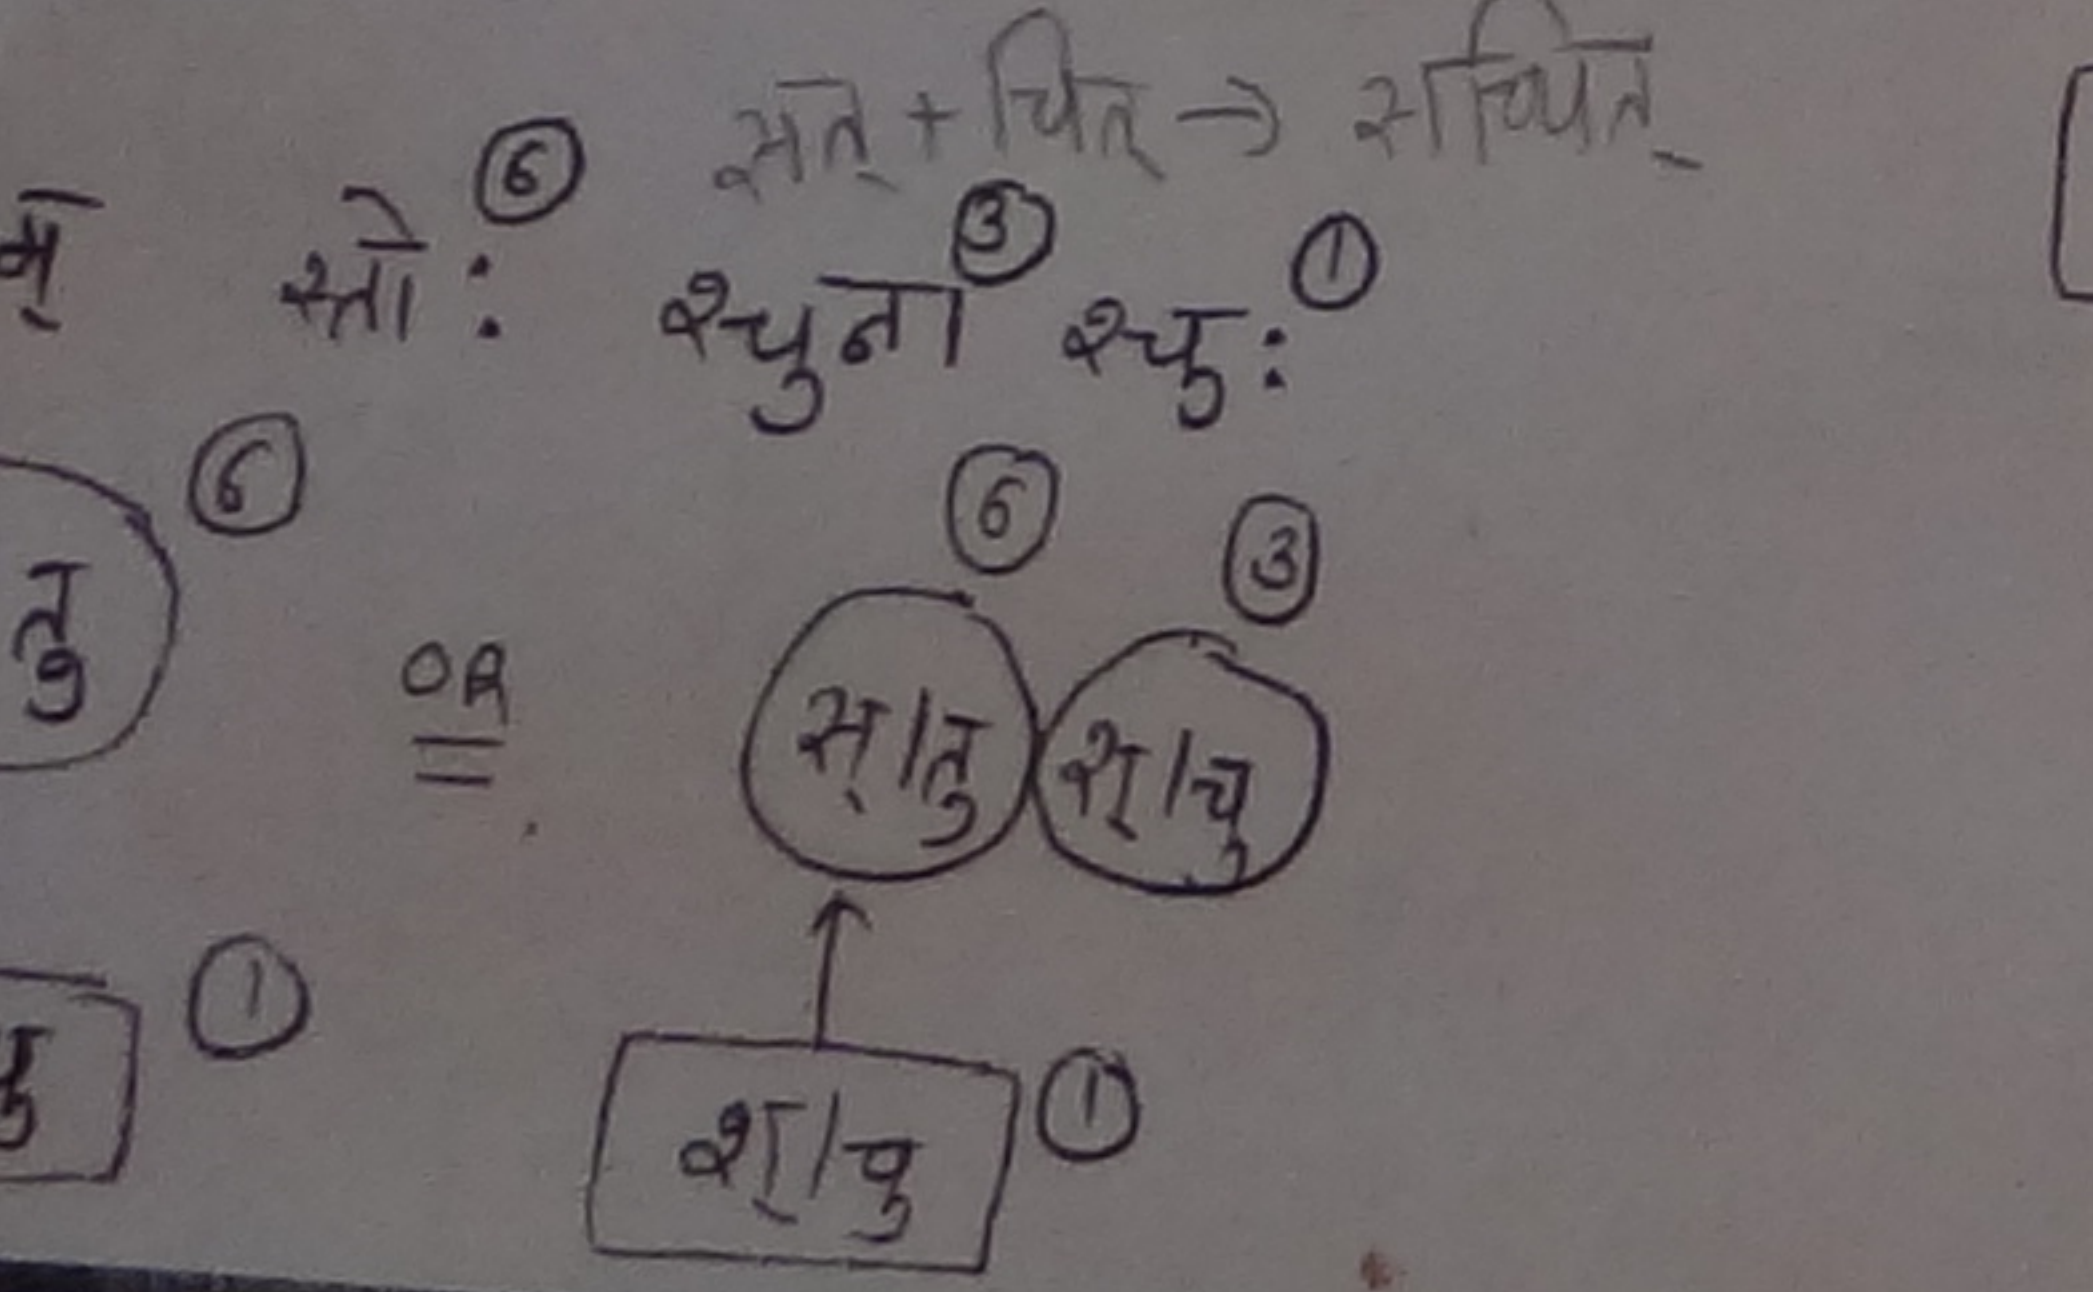 सत् + चित् → सच्चित्
स्तोः ⑥ श्चुना ③ श्चुः ①
तु ⑥
OR
स्/तु ⑥ श्/चु ③
①
श्/चु ①